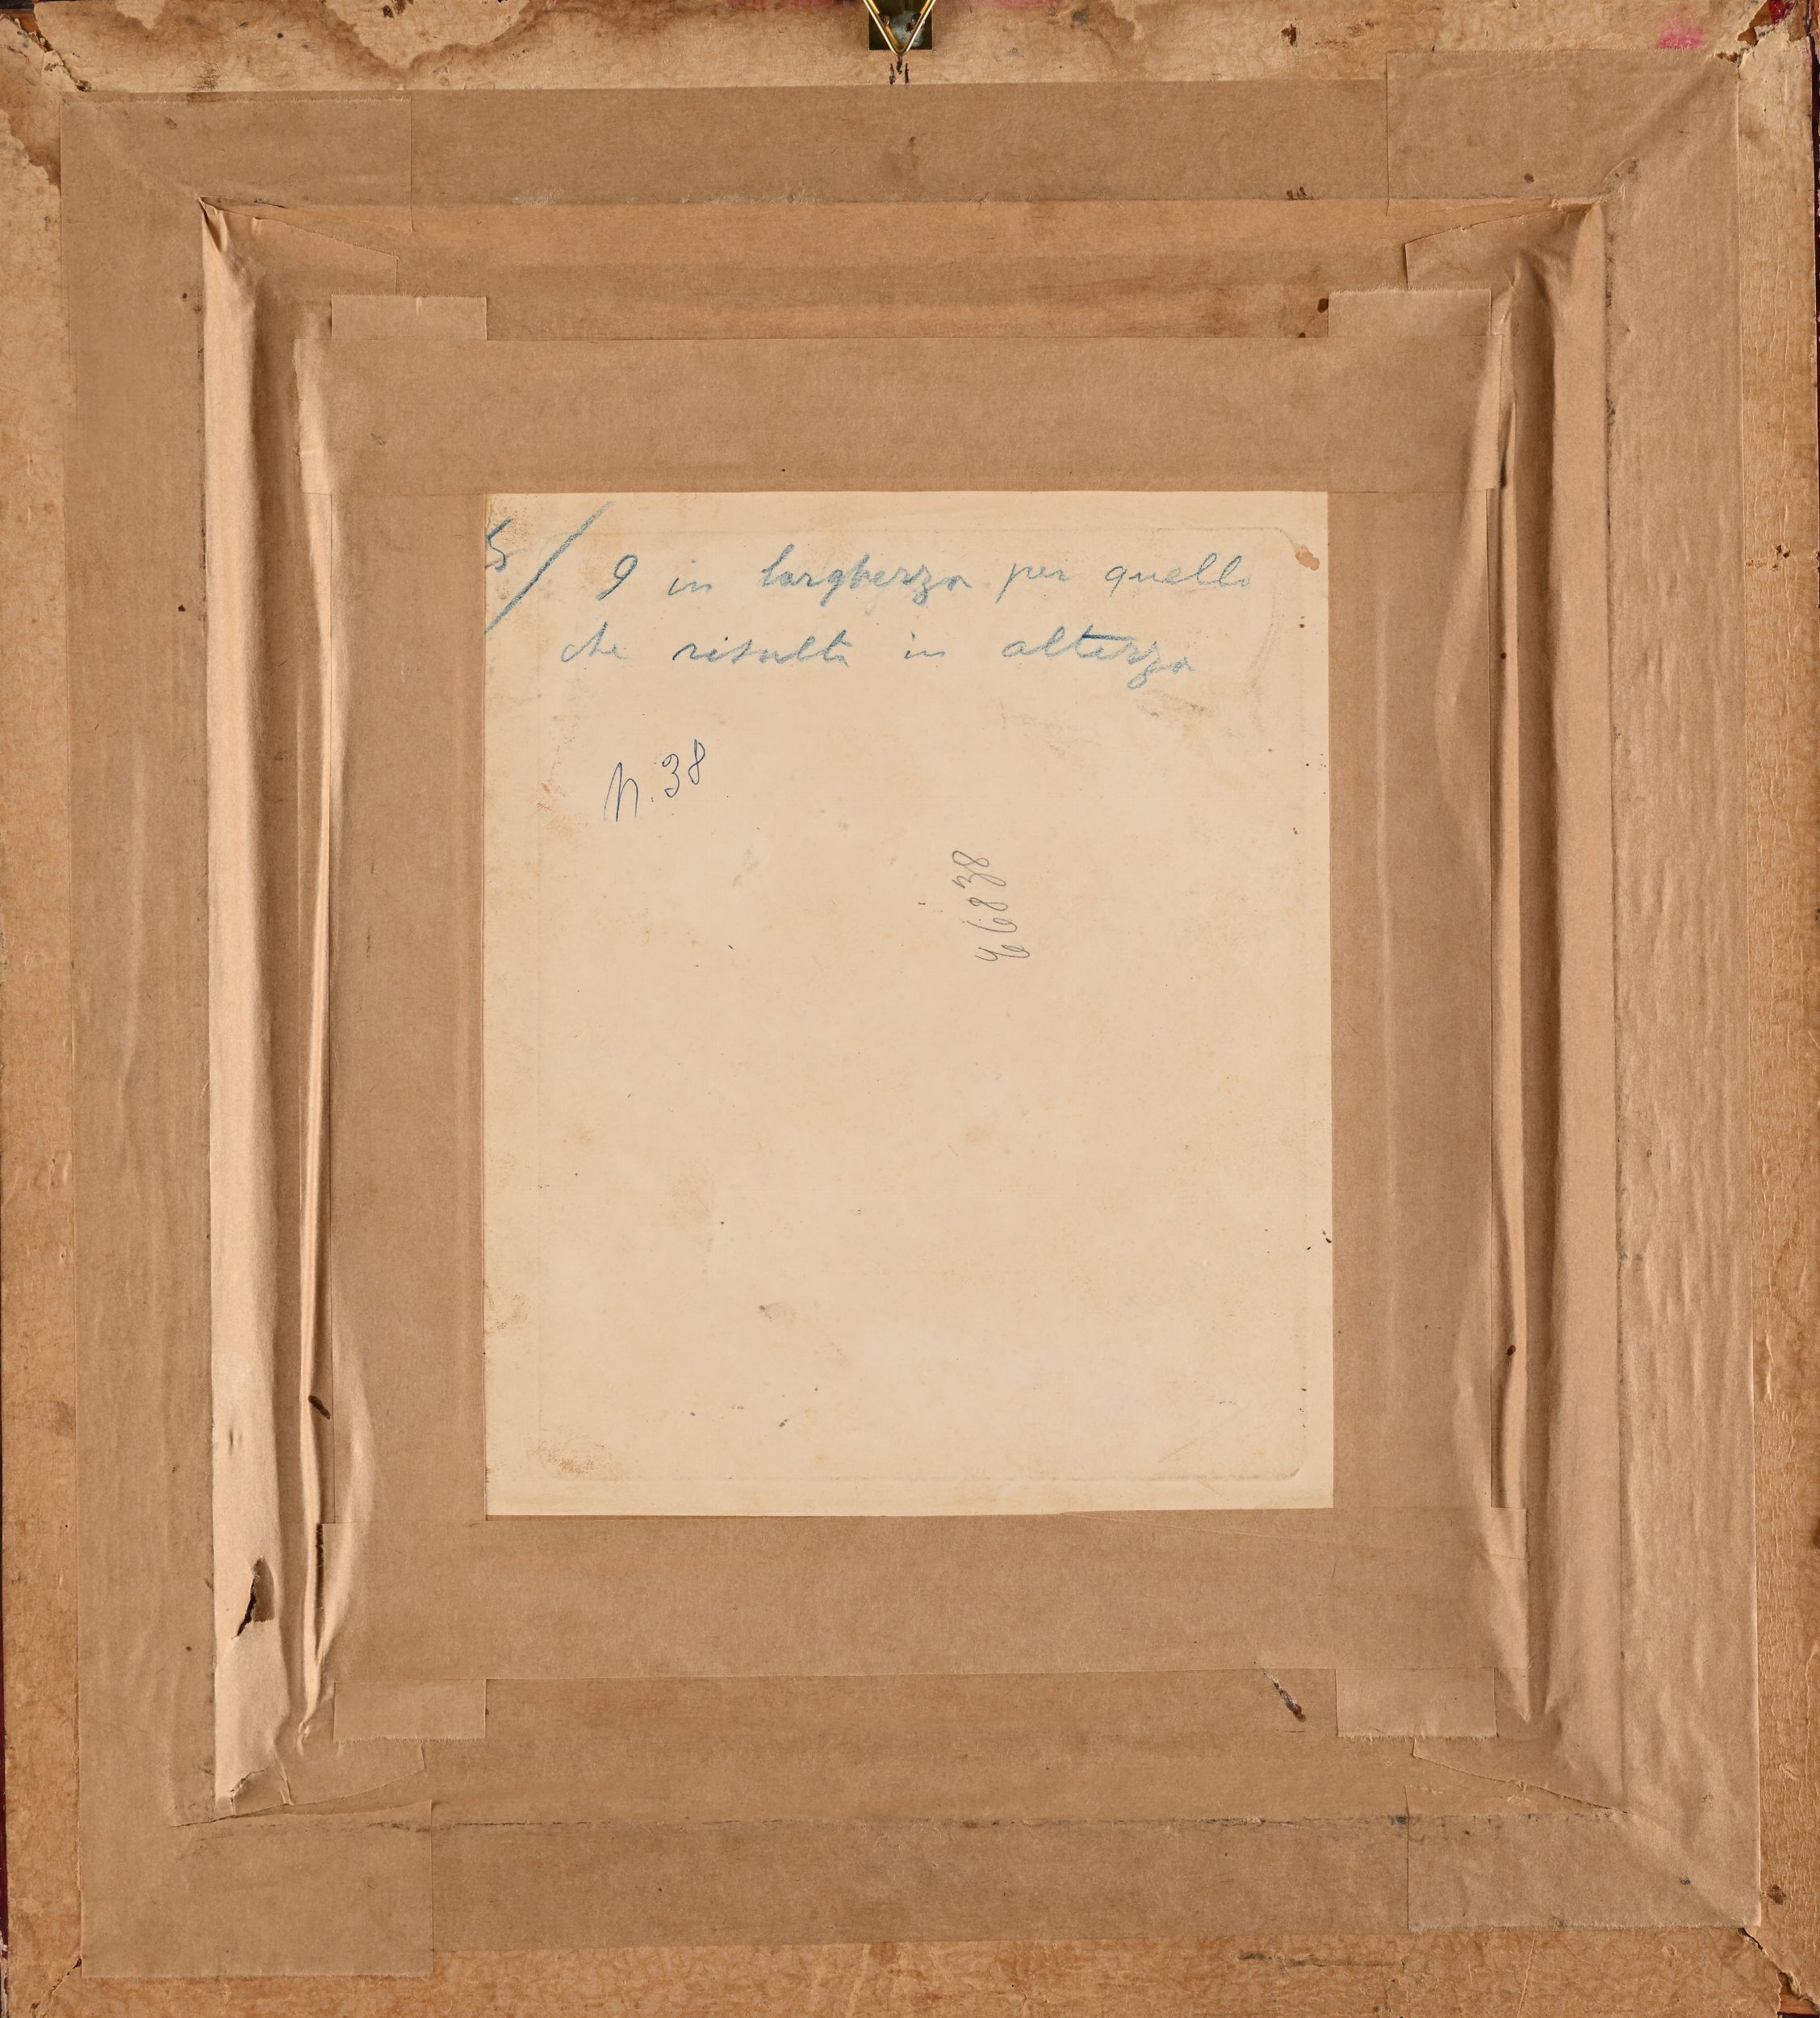 5/ 9 in larghezza per quello
che risulta in altezza
N. 38